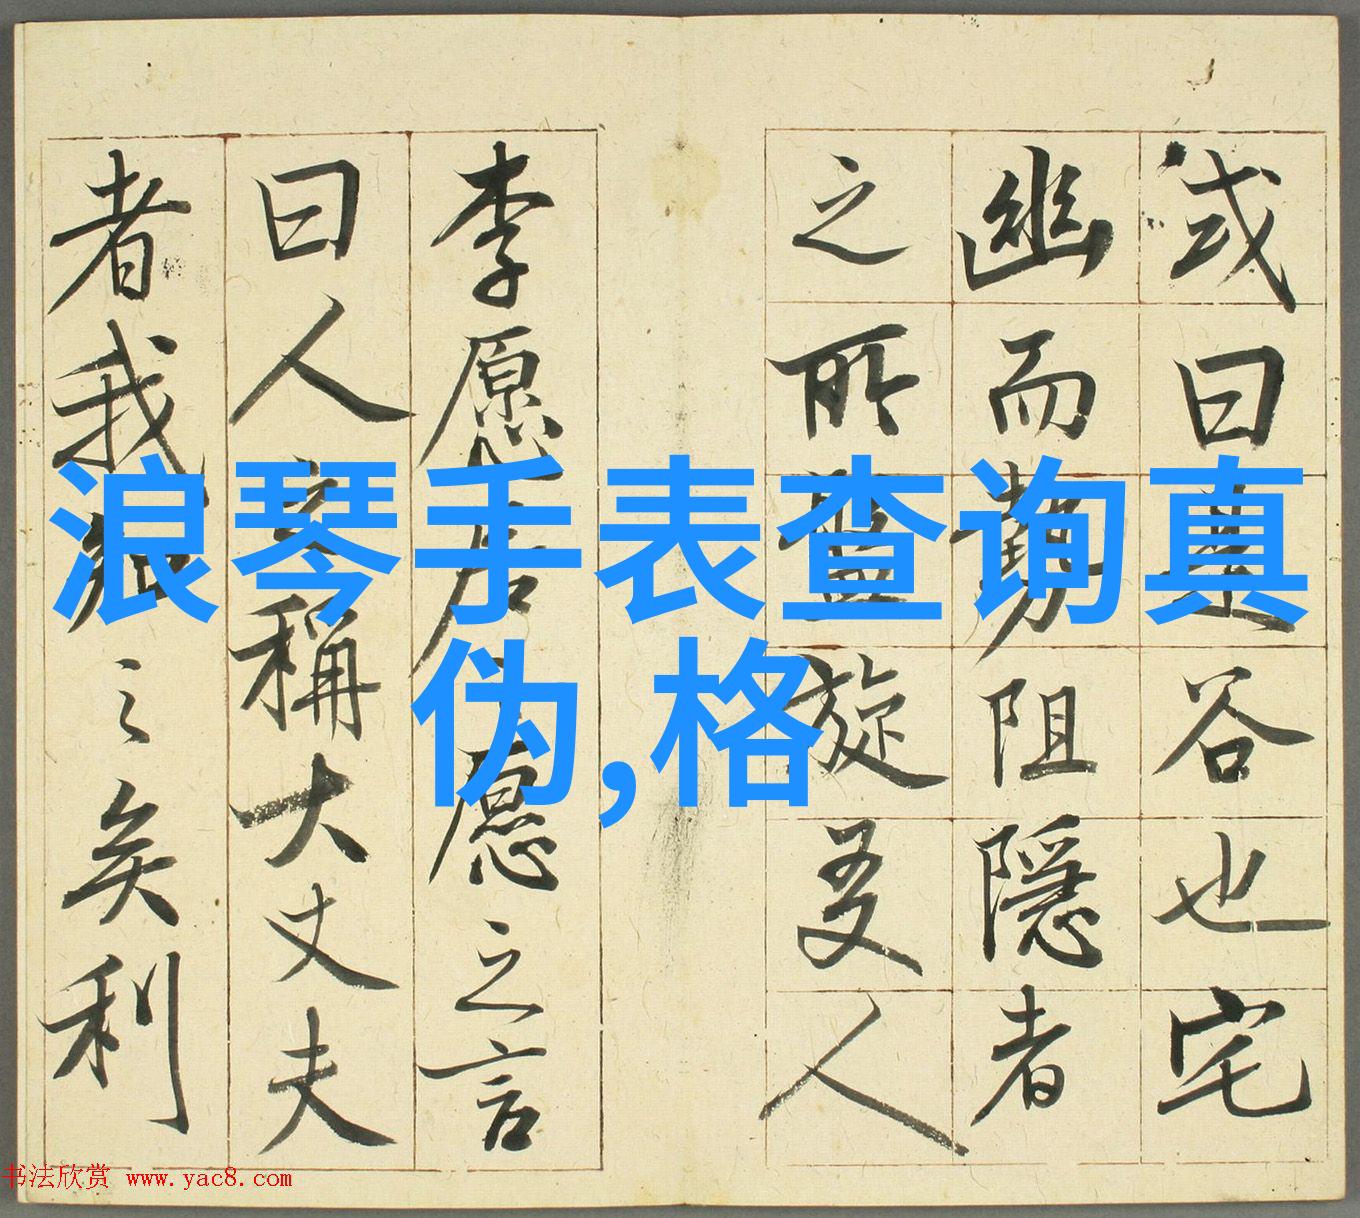 或曰是谷也宅
幽而勢阻隱者
之所盤旋友人
李愿居之愿之言
曰人之稱大丈夫
者我知之矣利
浪琴手表查询真
伪,格
书法欣赏 www.yac8.com